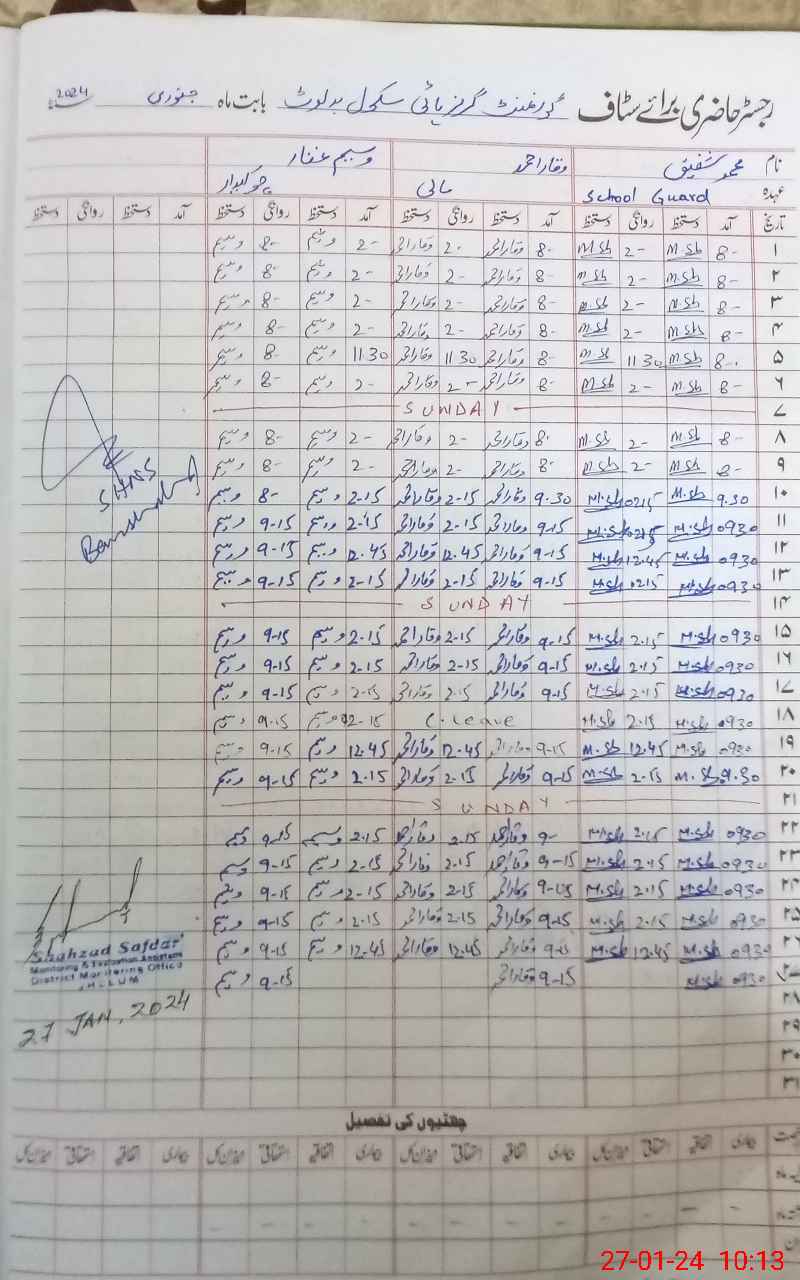 رجسٹر حاضری برائے سٹاف گورنمنٹ گرلز ہائی سکول بدلوٹ بابت ماہ جنوری 2024
نام محمد شفیق وقار احمد وسیم غفار
عہدہ School Guard مالی چوکیدار
تاریخ آمد دستخط روانگی دستخط آمد دستخط روانگی دستخط آمد دستخط روانگی دستخط آمد دستخط روانگی دستخط
۱ 8- M.Sh 2- M.Sh 8- وقار احمد 2- وقار احمد 2- وسیم 8- وسیم
۲ 8- M.Sh 2- M.Sh 8- وقار احمد 2- وقار احمد 2- وسیم 8- وسیم
۳ 8- M.Sh 2- M.Sh 8- وقار احمد 2- وقار احمد 2- وسیم 8- وسیم
۴ 8- M.Sh 2- M.Sh 8- وقار احمد 2- وقار احمد 2- وسیم 8- وسیم
۵ 8- M.Sh 11.30 M.Sh 8- وقار احمد 11.30 وقار احمد 11.30 وسیم 8- وسیم
۶ 8- M.Sh 2- M.Sh 8- وقار احمد 2- وقار احمد 2- وسیم 8- وسیم
۷ SUNDAY
۸ 8- M.Sh 2- M.Sh 8- وقار احمد 2- وقار احمد 2- وسیم 8- وسیم
۹ 8- M.Sh 2- M.Sh 8- وقار احمد 2- وقار احمد 2- وسیم 8- وسیم
۱۰ 9.30 M.Sh 0215 M.Sh 9.30 وقار احمد 2-15 وقار احمد 2.15 وسیم 8- وسیم
۱۱ 0930 M.Sh 0215 M.Sh 9-15 وقار احمد 2-15 وقار احمد 2-15 وسیم 9-15 وسیم
۱۲ 0930 M.Sh 12.45 M.Sh 9-15 وقار احمد 12.45 وقار احمد 12.45 وسیم 9-15 وسیم
۱۳ 0930 M.Sh 0215 M.Sh 9-15 وقار احمد 2-15 وقار احمد 2-15 وسیم 9-15 وسیم
۱۴ SUNDAY
۱۵ 0930 M.Sh 2.15 M.Sh 9-15 وقار احمد 2-15 وقار احمد 2.15 وسیم 9-15 وسیم
۱۶ 0930 M.Sh 2.15 M.Sh 9-15 وقار احمد 2-15 وقار احمد 2.15 وسیم 9-15 وسیم
۱۷ 0930 M.Sh 2.15 M.Sh 9-15 وقار احمد 2.15 وقار احمد 2-15 وسیم 9-15 وسیم
۱۸ 0930 M.Sh 2.15 M.Sh C. Leave 2-15 وسیم 9-15 وسیم
۱۹ 0930 M.Sh 12.45 M.Sh 9-15 وقار احمد 12.45 وقار احمد 12.45 وسیم 9-15 وسیم
۲۰ 9.30 M.Sh 2.15 M.Sh 9-15 وقار احمد 2-15 وقار احمد 2.15 وسیم 9-15 وسیم
۲۱ SUNDAY
۲۲ 0930 M.Sh 2.15 M.Sh 9- وقار احمد 2.15 وقار احمد 2.15 وسیم 9-15 وسیم
۲۳ 0930 M.Sh 2.15 M.Sh 9-15 وقار احمد 2.15 وقار احمد 2-15 وسیم 9-15 وسیم
۲۴ 0930 M.Sh 2.15 M.Sh 9-15 وقار احمد 2-15 وقار احمد 2-15 وسیم 9-15 وسیم
۲۵ 0930 M.Sh 2.15 M.Sh 9-15 وقار احمد 2-15 وقار احمد 2-15 وسیم 9-15 وسیم
۲۶ 0930 M.Sh 12.45 M.Sh 9-15 وقار احمد 12.45 وقار احمد 12.45 وسیم 9-15 وسیم
۲۷ 0930 M.Sh 9-15 وقار احمد 9-15 وسیم
۲۸
۲۹
۳۰
۳۱
Shahzad Safdar
Monitoring & Evaluation Assistant
District Monitoring Office
JHELUM
27 JAN, 2024
چھٹیوں کی تفصیل
بیماری اتفاقیہ استحقاقی میزان کل بیماری اتفاقیہ استحقاقی میزان کل بیماری اتفاقیہ استحقاقی میزان کل بیماری اتفاقیہ استحقاقی میزان کل
27-01-24 10:13